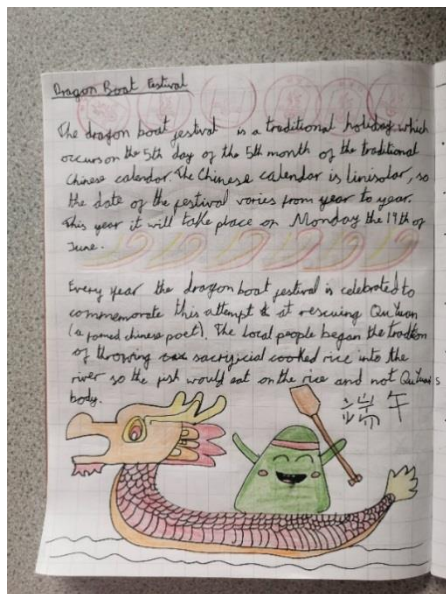 Dragon Boat Festival
The dragon boat festival is a traditional holiday which
occurs on the 5th day of the 5th month of the traditional
Chinese calendar. The Chinese calendar is linisolar, so
the date of the festival varies from year to year.
This year it will take place on Monday the 19th of
June.
Every year the dragon boat festival is celebrated to
commemorate this attempt at rescuing Qu Yuan
(a famed chinese poet). The local people began the tradtion
of throwing sacrificial cooked rice into the
river so the fish would eat on the rice and not Qu Yuan's
body.
端午